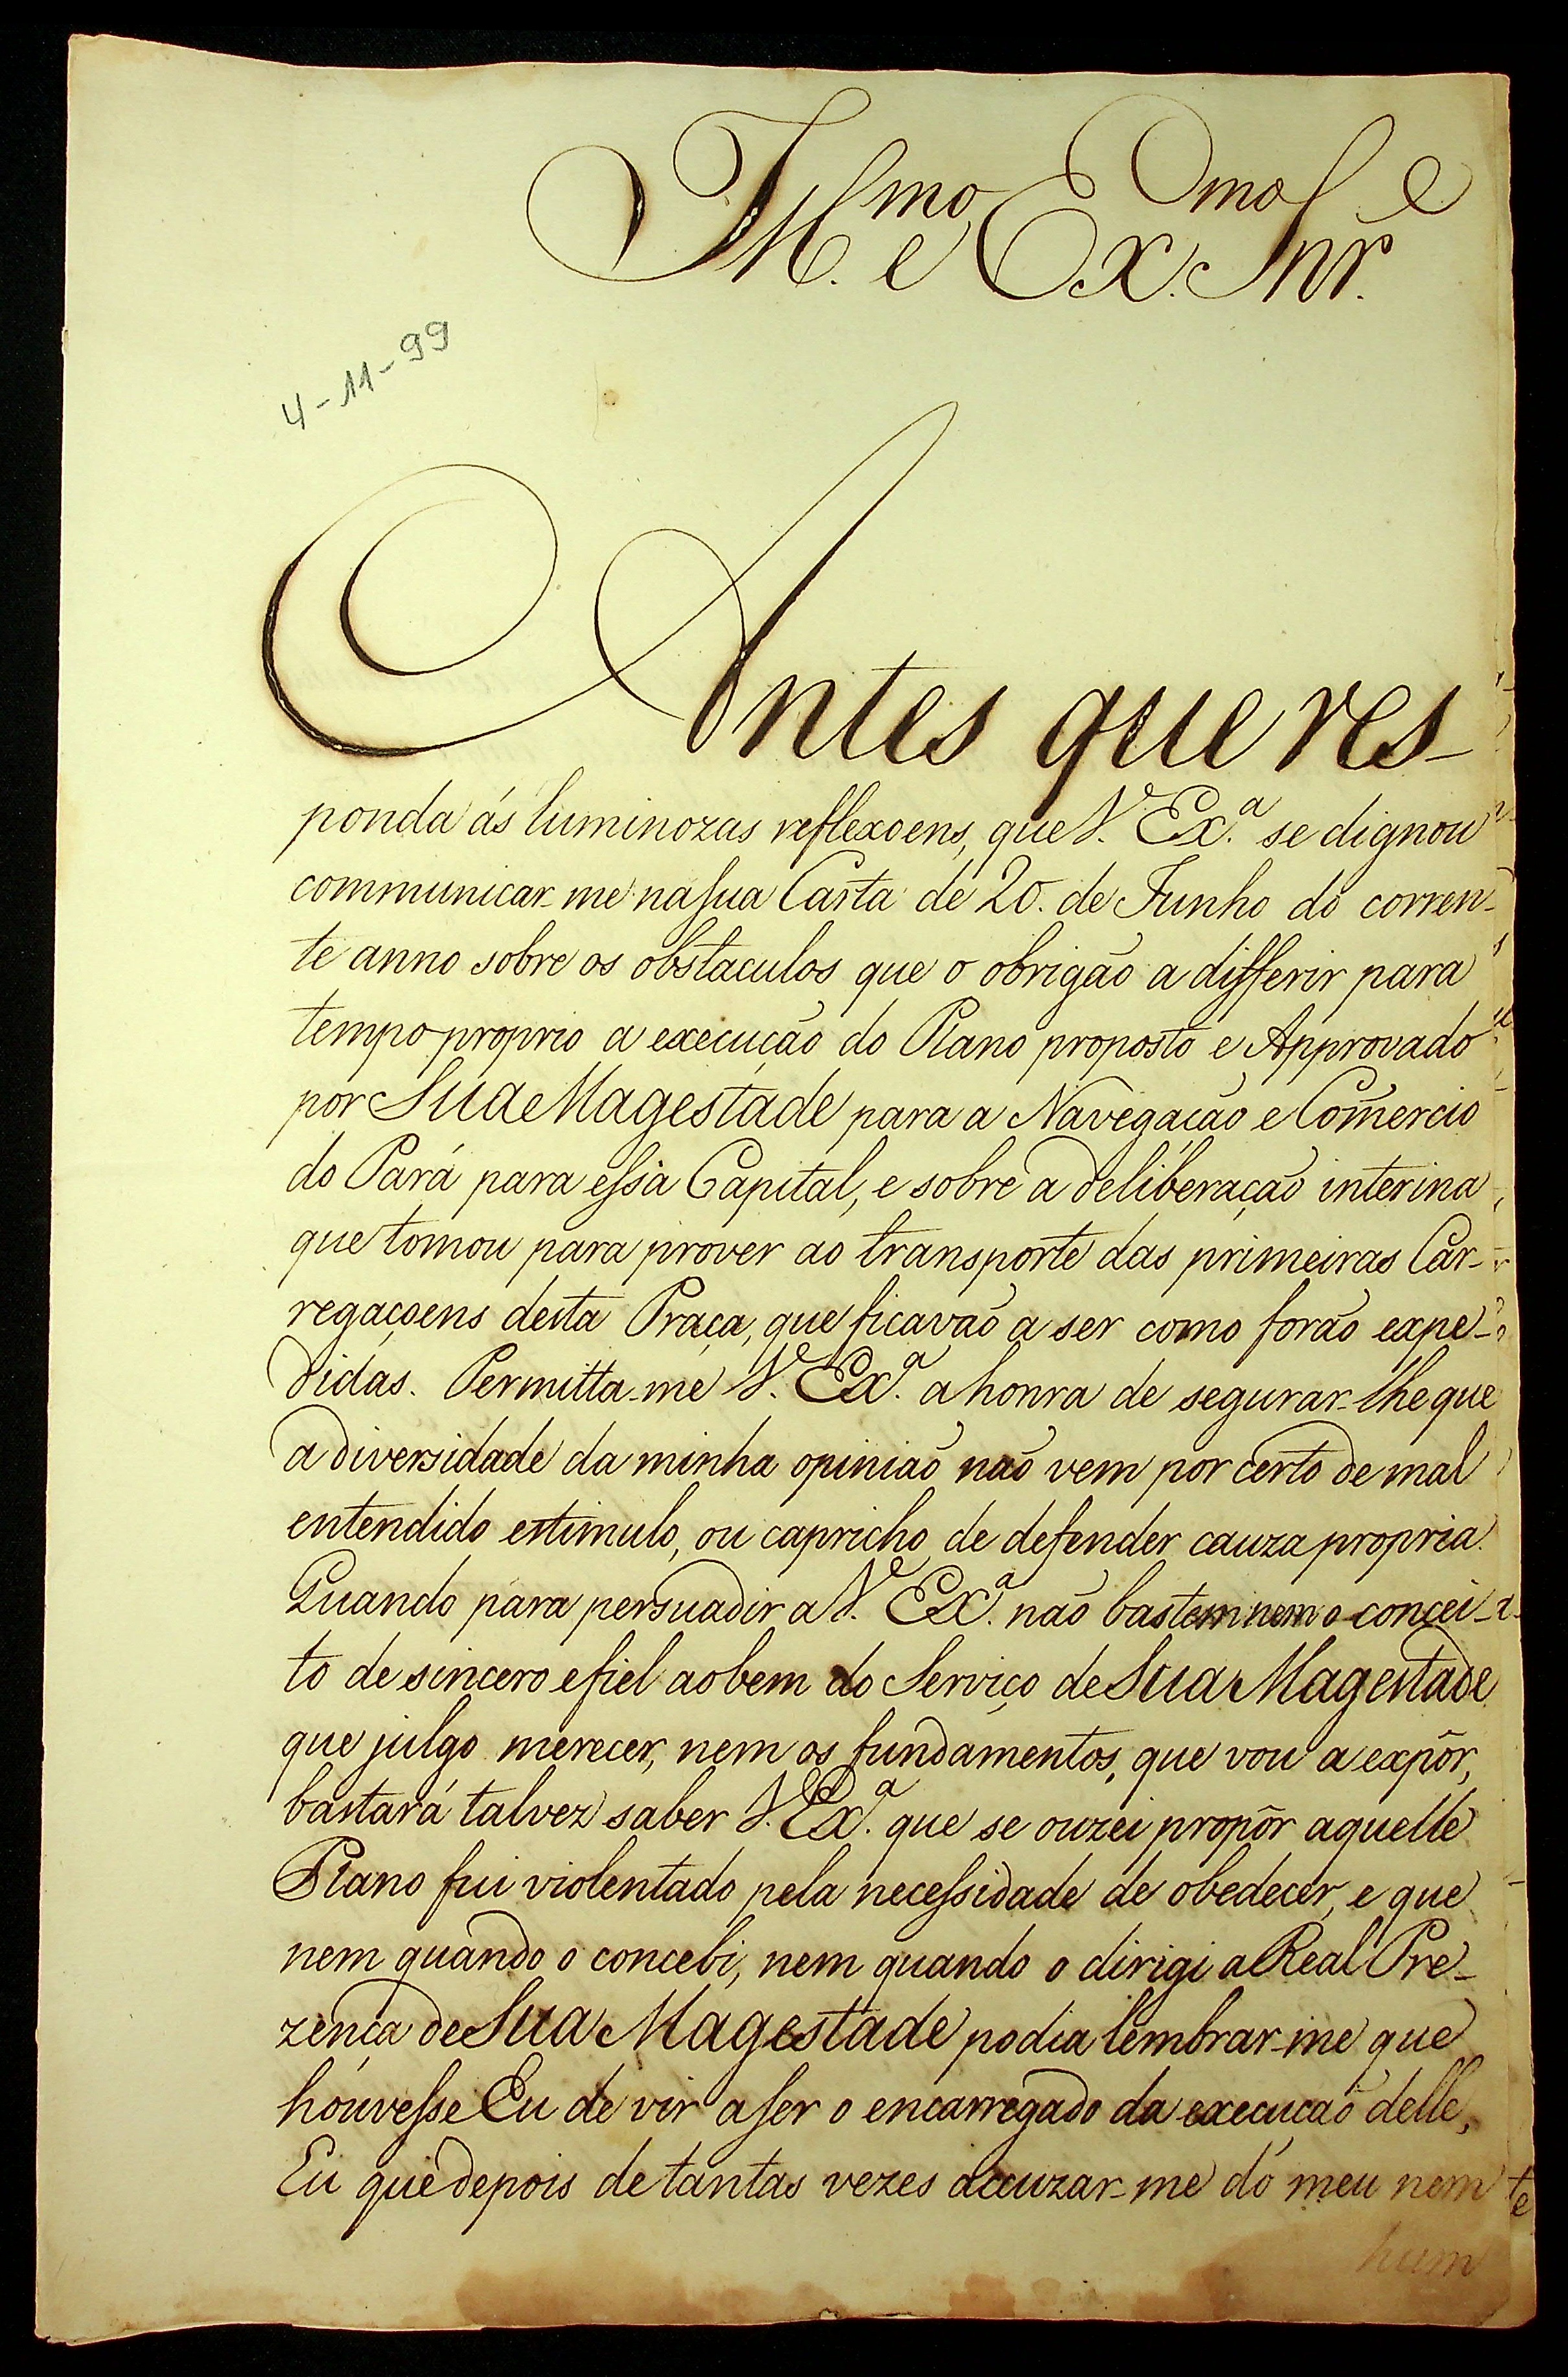 Ill.mo e Ex.mo Snr.
4-11-99
Antes que res-
ponda ás luminozas reflexoens, que V. Ex.a se dignou
communicar-me na sua Carta de 20. de Junho do corren-
te anno sobre os obstaculos que o obrigão a differir para
tempo proprio a execução do Plano proposto e Approvado
por Sua Magestade para a Navegação e Comercio
do Pará para essa Capital, e sobre a deliberação interina
que tomou para prover ao transporte das primeiras Car-
regaçoens desta Praça, que ficavão a ser como forão expe-
didas. Permitta-me V. Ex.a a honra de segurar-lhe que
a diversidade da minha opinião não vem por certo de mal
entendido estimulo, ou capricho de defender cauza propria.
Quando para persuadir a V. Ex.a não bastem nem o concei-
to de sincero e fiel ao bem do Serviço de Sua Magestade
que julgo merecer, nem os fundamentos, que vou a expôr,
bastará talvez saber V. Ex.a que se ouzei propôr aquelle
Plano fui violentado pela necessidade de obedecer, e que
nem quando o concebi, nem quando o dirigi a Real Pre-
zença de Sua Magestade podia lembrar-me que
houvesse Eu de vir a ser o encarregado da execução delle,
Eu que depois de tantas vezes accuzar-me do meu nem
hum